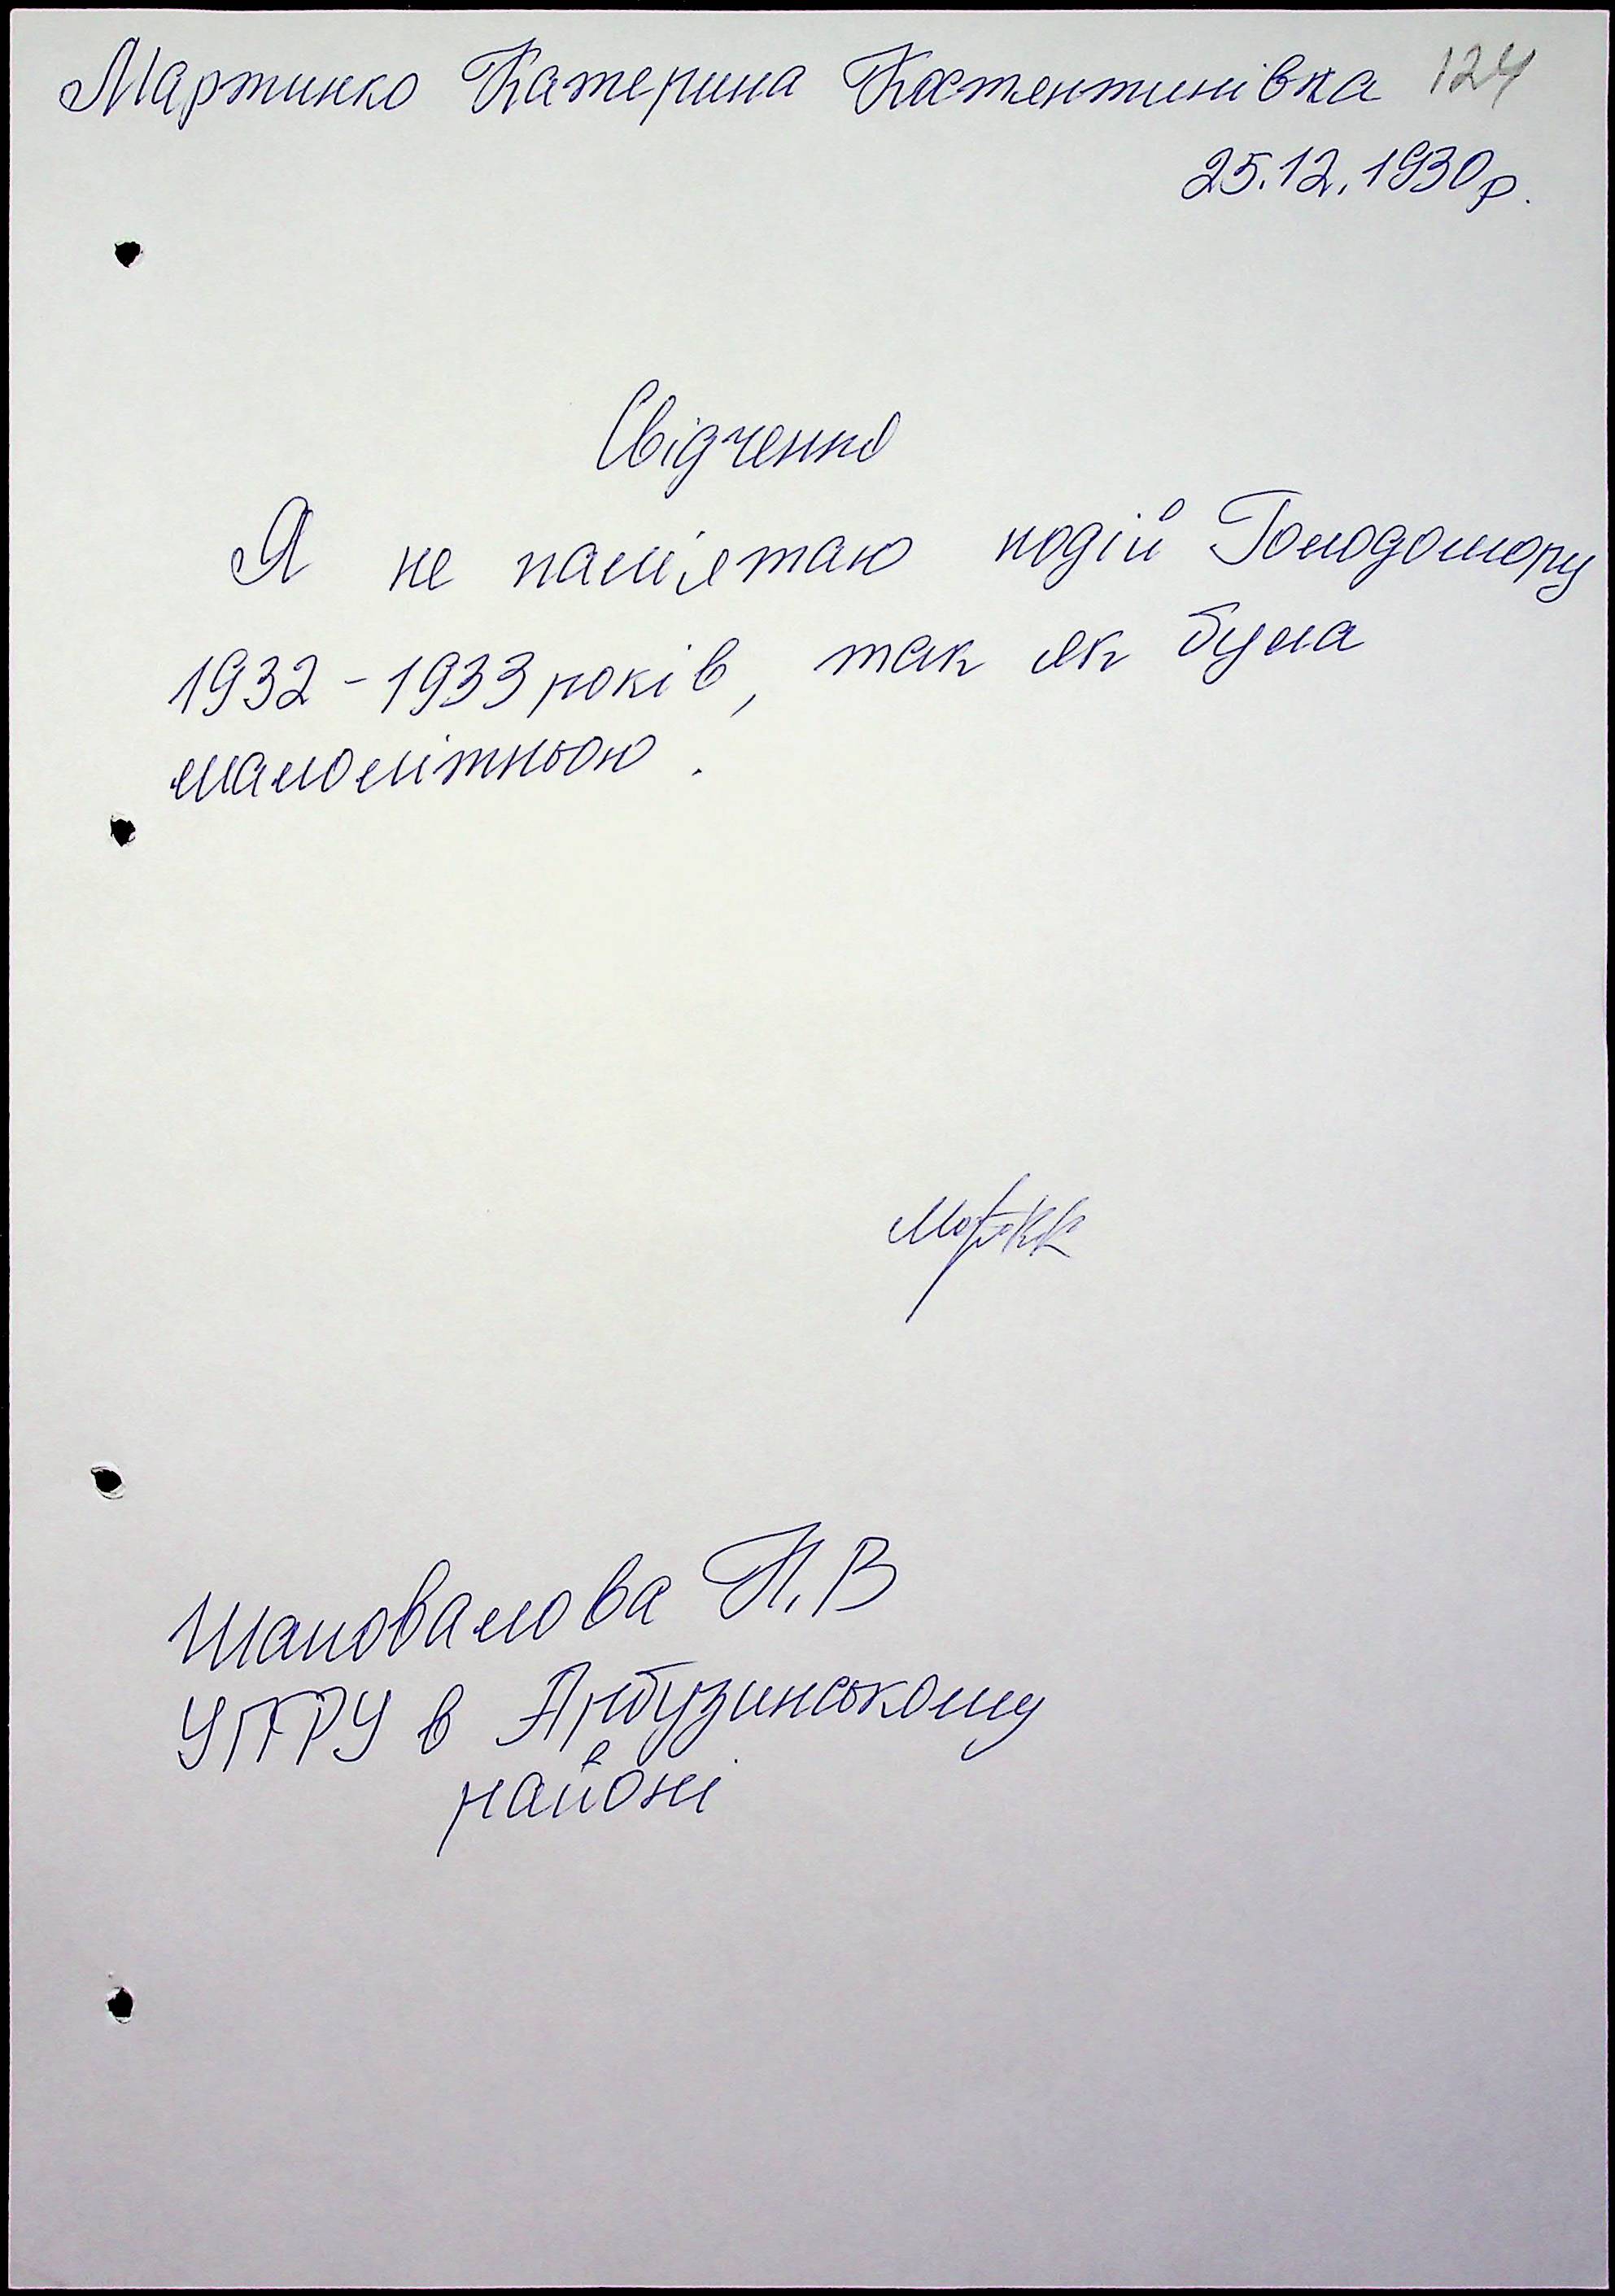 Мартинко Катерина Костентинівка 124
25.12.1930р.
Свідчення
Я не пам'ятаю подій Голодомору
1932-1933 років, так як була
малолітньою.
Шаповалова Н.В
УПФУ в Арбузинському
районі